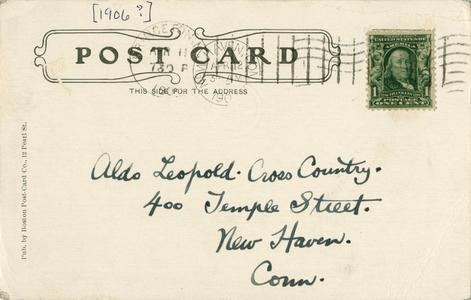 [1906?]
POST CARD
THIS SIDE FOR THE ADDRESS
UNITED STATES OF AMERICA
1
1
FRANKLIN
POSTAGE
ONE CENT
730 P
Pub. by Boston Post-Card Co., 12 Pearl St.
Aldo Leopold. Cross Country.
400 Temple Street.
New Haven.
Conn.